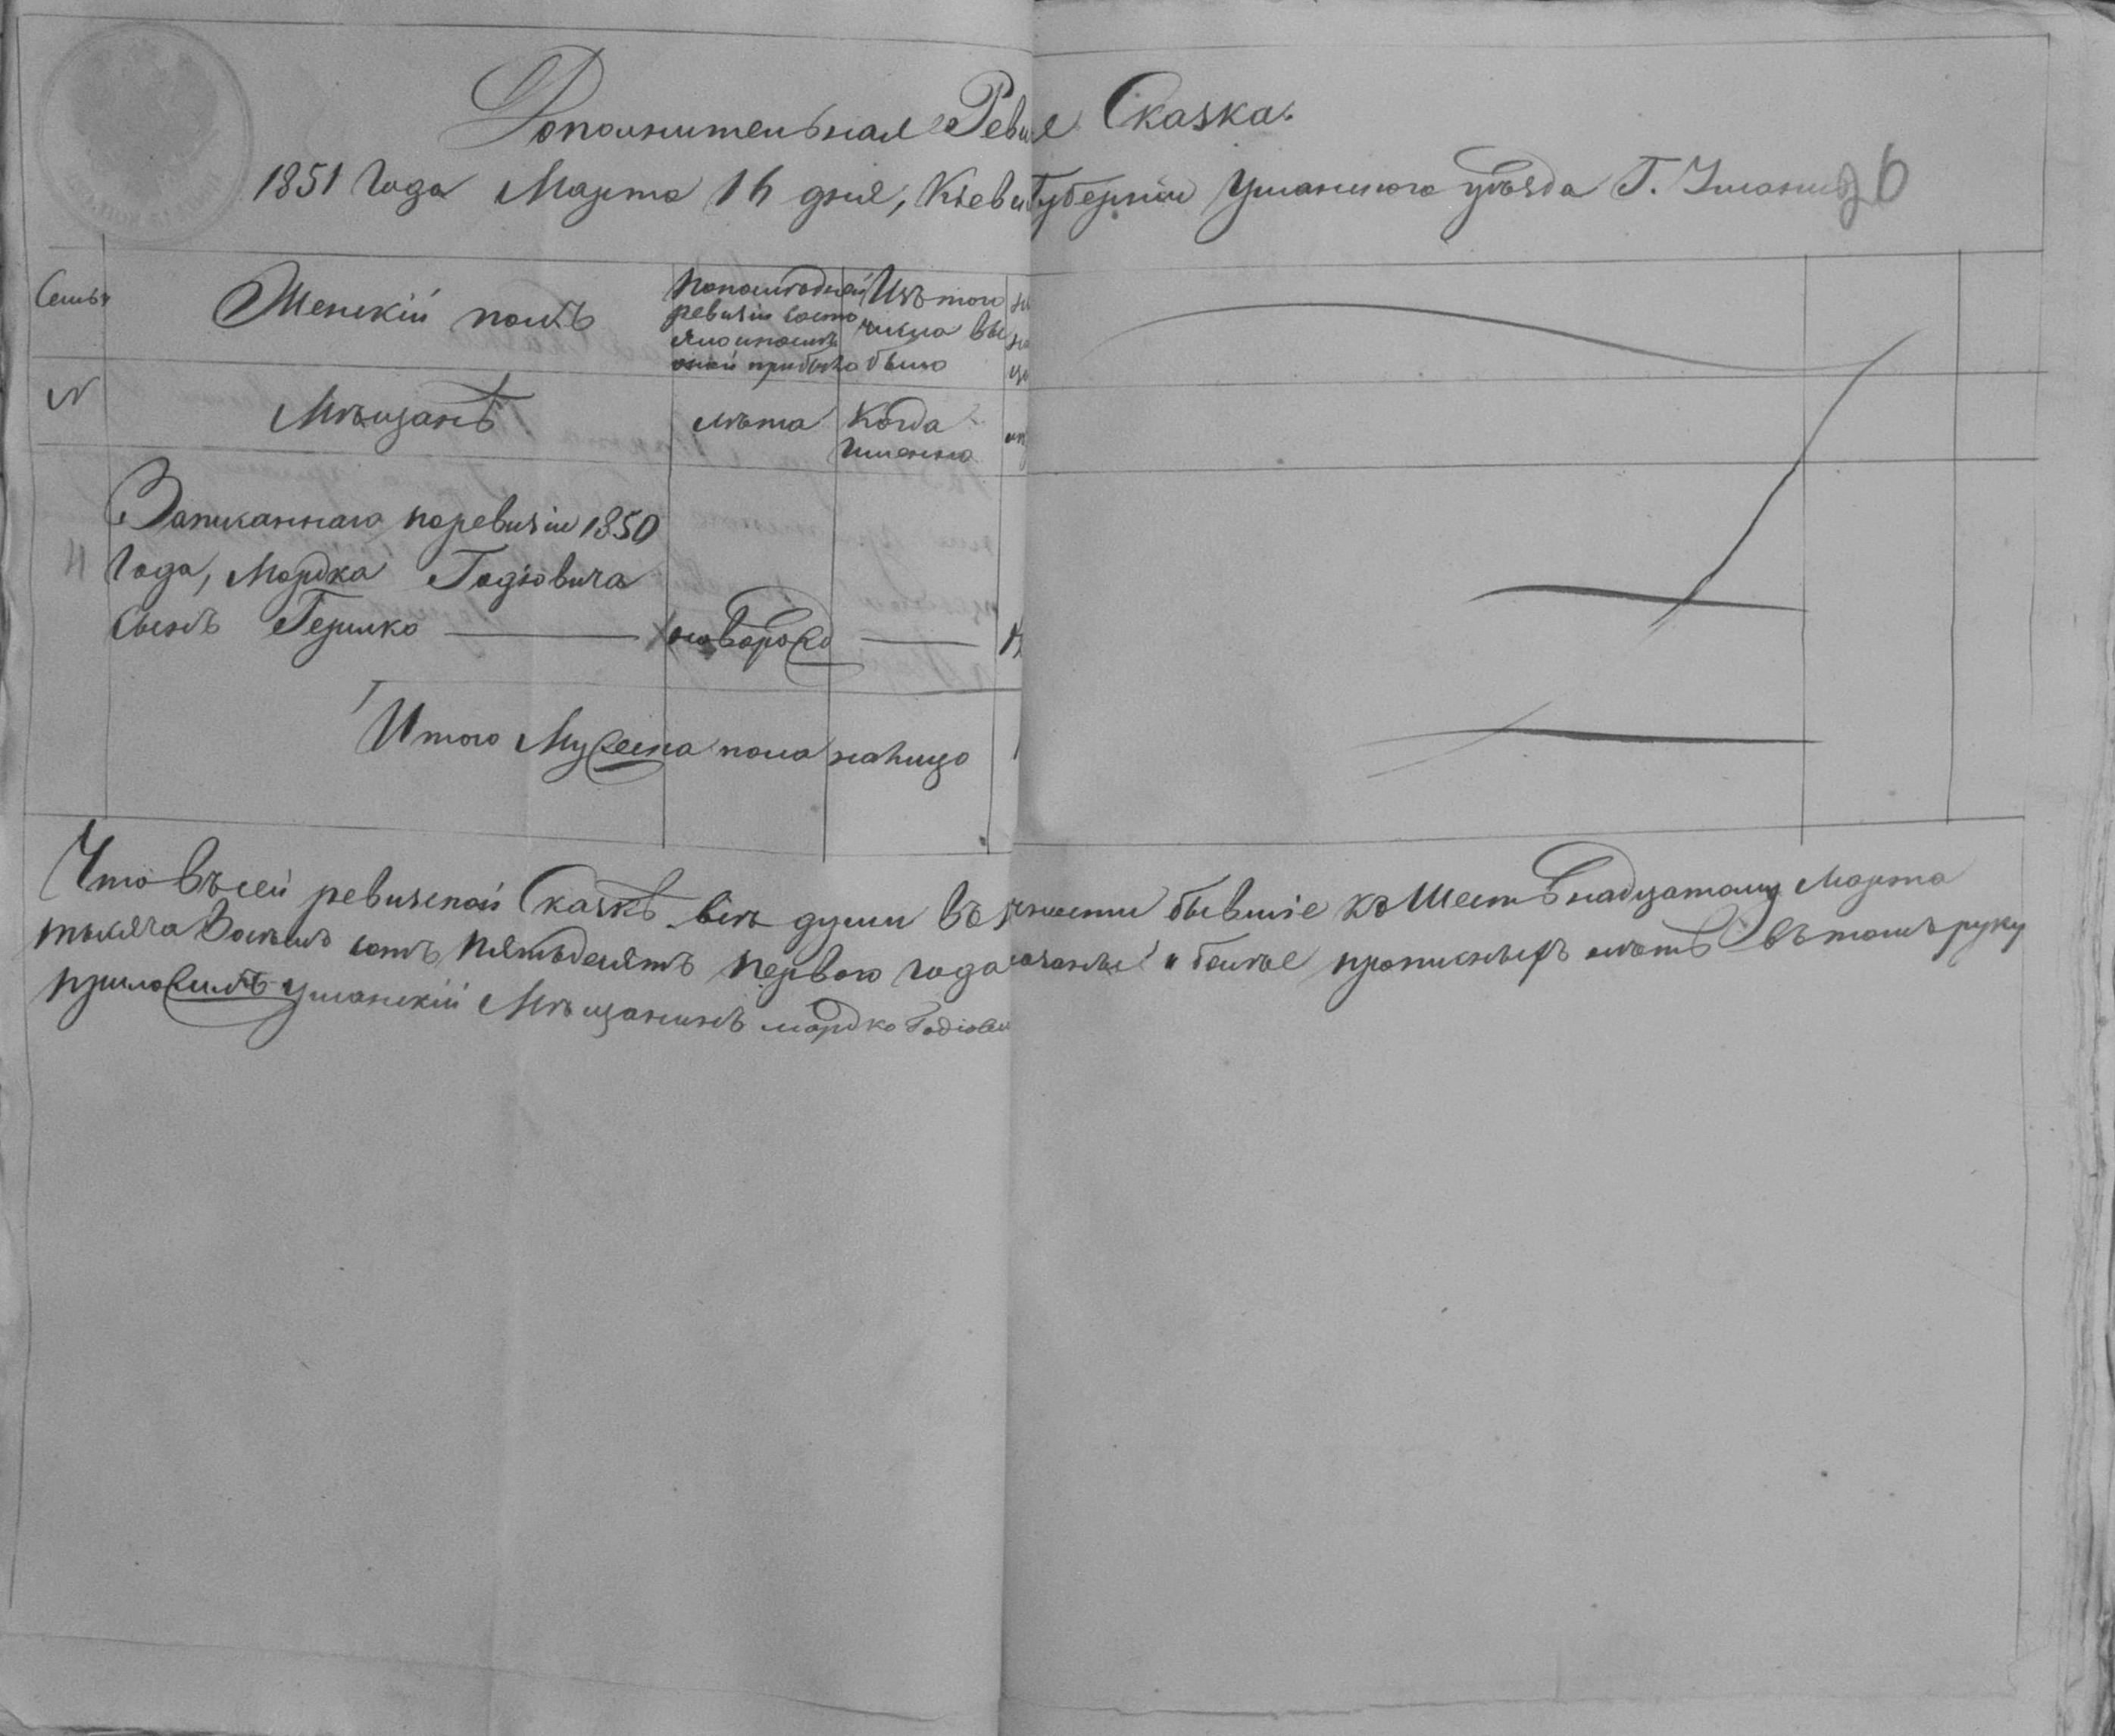 Дополнительная Реви е Сказка.
1851 Года Марта 16 дня, Кіеви Губерніи Уманского уѣзда Г. Умани
26
Семьи
Женскій полъ
По последней ревизіи состо
яло и после
оной прибыло
Изъ того
числа вы
было
№
Мѣщанъ
лѣта
Когда
Именно
Записаннаго по ревизіи 1850
Года, Мордка Годіовича
Сынъ Гершко новорож
Итого Мужеска пола на лицо 1
Что в сей ревизской Сказкѣ всѣ души въ бывшіе къ Шестьнадцатому Марта
тысяча Восемь сотъ пятьдесятъ первого года и более прописныхъ нѣтъ въ томъ руку
приложилъ уманскій Мѣщанинъ мордко Годіови